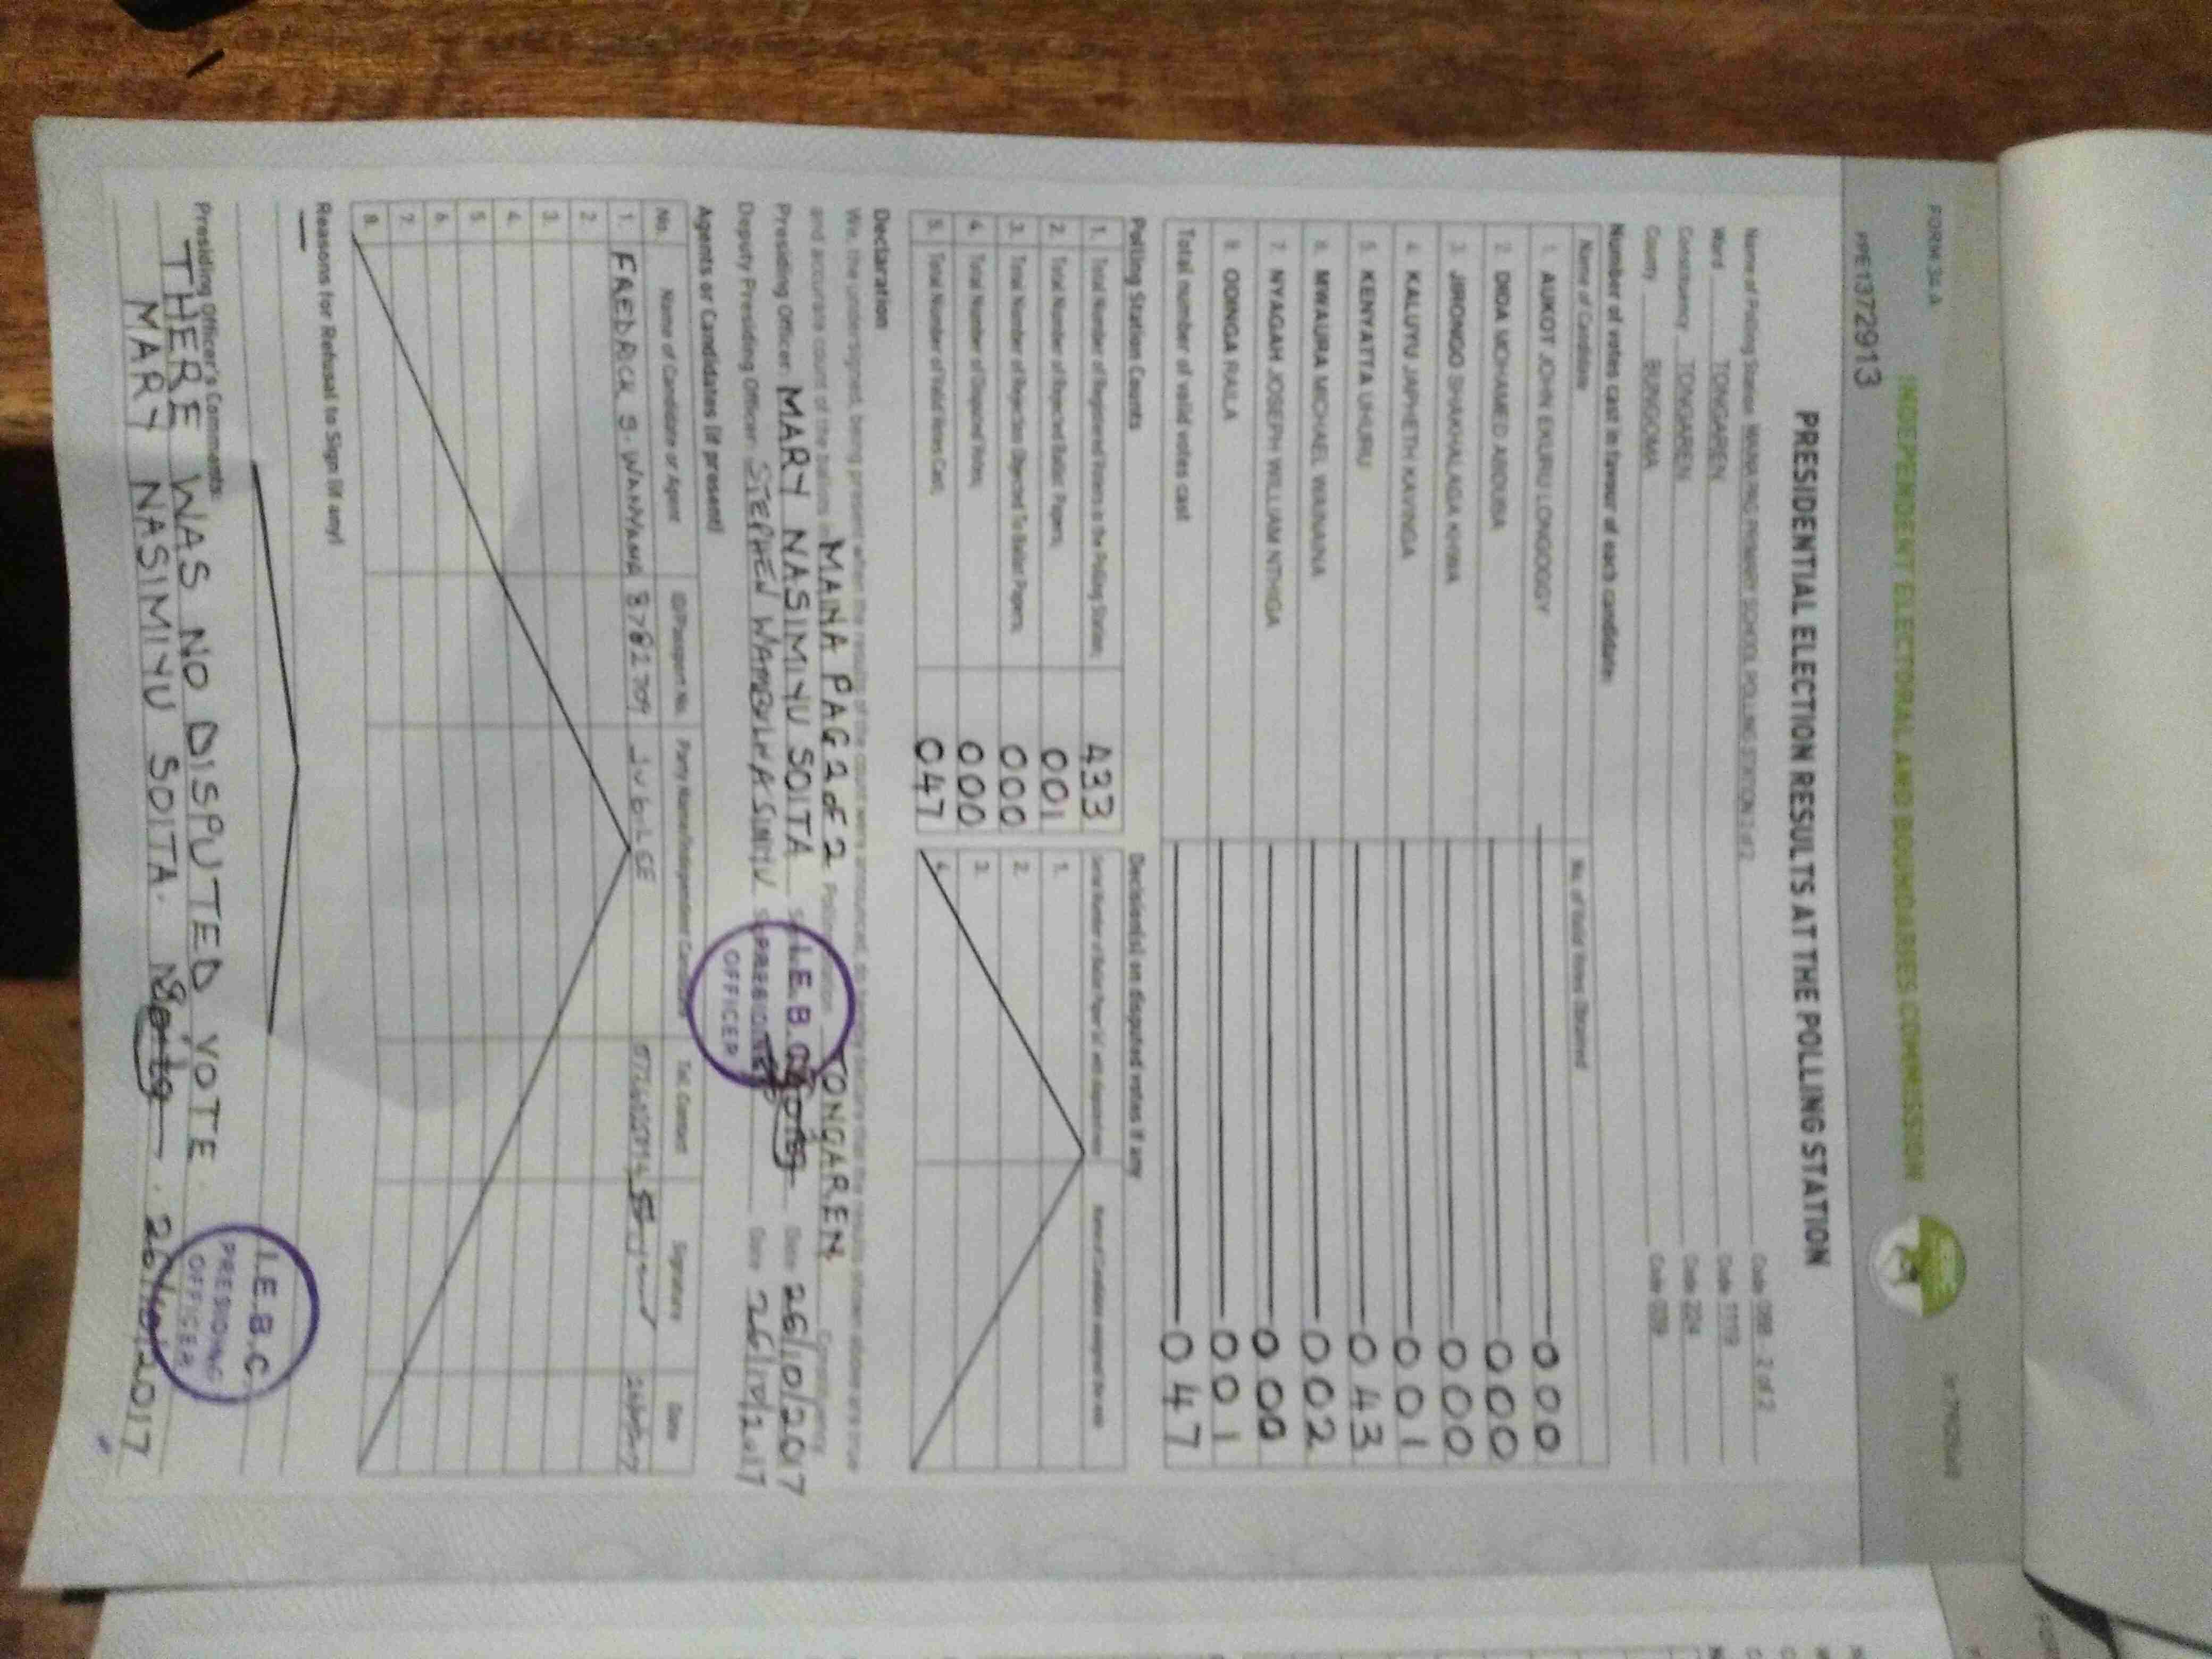 FORM 34 A
INDEPENDENT ELECTORAL AND BOUNDARIES COMMISSION
PRE13729 13
PRESIDENTIAL ELECTION RESULTS AT THE POLLING STATION
Name of Polling Station MAINA PAG PRIMARY SCHOOL POLLING STATION 2 of 2 Code 098 - 2 of 2
Ward TONGAREN Code 1119
Constituency TONGAREN Code 224
County BUNGOMA Code 039
Number of votes cast in favour of each candidate:
Name of Candidate No. of Valid Votes Obtained
1. AUKOT JOHN EKURU LONGOGGY 000
2. DIDA MOHAMED ABDUBA 000
3. JIRONGO SHAKHALAGA KHWA 000
4. KALUYU JAPHETH KAVINGA 001
5. KENYATTA UHURU 043
6. MWAURA MICHAEL WAINAINA 002
7. NYAGAH JOSEPH WILLIAM NTHIGA 000
8. ODINGA RAILA 001
Total number of valid votes cast 047
Polling Station Counts
1. Total Number of Registered Voters in the Polling Station; 433
2. Total Number of Rejected Ballot Papers; 001
3. Total Number of Rejection Objected To Ballot Papers; 000
4. Total Number of Disputed Votes; 000
5. Total Number of Valid Votes Cast; 047
Decision(s) on disputed votes if any
Serial Number of Ballot Paper (s) with disputed vote Name of Candidate assigned the vote
1.
2.
3.
4.
Declaration
We, the undersigned, being present when the results of the count were announced, do hereby declare that the results shown above are true
and accurate count of the ballots in MAINA PAG 2 of 2 Polling Station TONGAREN Constituency
Presiding Officer MARY NASIMIYU SOITA Date 26/10/2017
Deputy Presiding Officer STEPHEN WAMBULWA SIMIYU Date 26/10/2017
I.E.B.C
PRESIDING
OFFICER
Agents or Candidates (if present)
No. Name of Candidate or Agent ID/Passport No. Party Name/Independent Candidate Tel. Contact Signature Date
1. FREDRICK S. WANYAMA 8782709 JUBILEE
2
3.
4.
5.
6.
7.
8.
Reasons for Refusal to Sign (if any)
Presiding Officer's Comments:
THERE WAS NO DISPUTED VOTE.
MARY NASIMIYU SOITA. 26/10/2017
I.E.B.C
PRESIDING
OFFICER